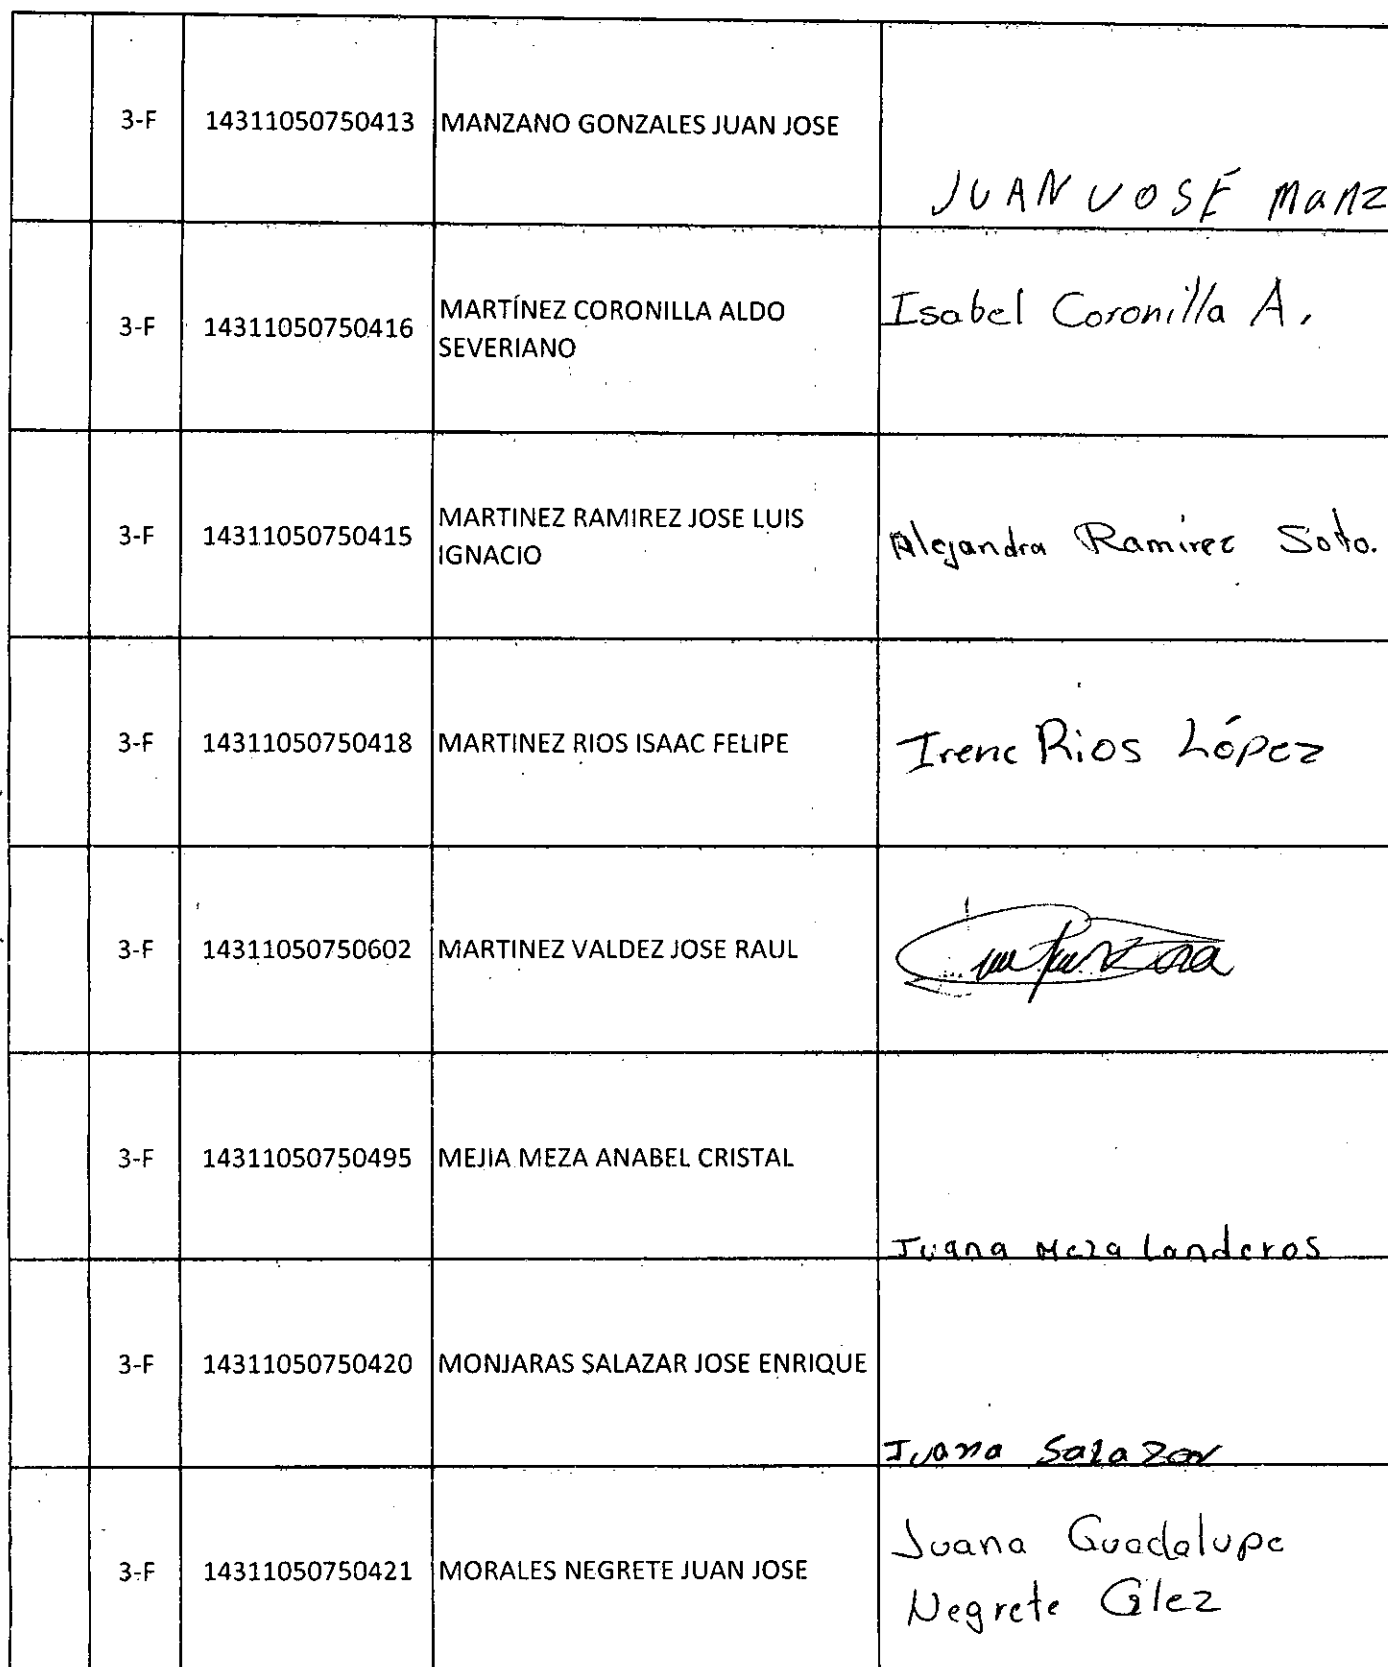 3-F 14311050750413 MANZANO GONZALES JUAN JOSE
JUAN JOSÉ Manz
3-F 14311050750416 MARTÍNEZ CORONILLA ALDO
SEVERIANO
Isabel Coronilla A.
3-F 14311050750415 MARTINEZ RAMIREZ JOSE LUIS
IGNACIO
Alejandra Ramirez Soto.
3-F 14311050750418 MARTINEZ RIOS ISAAC FELIPE
Irene Rios López
3-F 14311050750602 MARTINEZ VALDEZ JOSE RAUL
3-F 14311050750495 MEJIA MEZA ANABEL CRISTAL
Juana Meza Landeros
3-F 14311050750420 MONJARAS SALAZAR JOSE ENRIQUE
Juana Salazar
3-F 14311050750421 MORALES NEGRETE JUAN JOSE
Juana Guadalupe
Negrete Glez